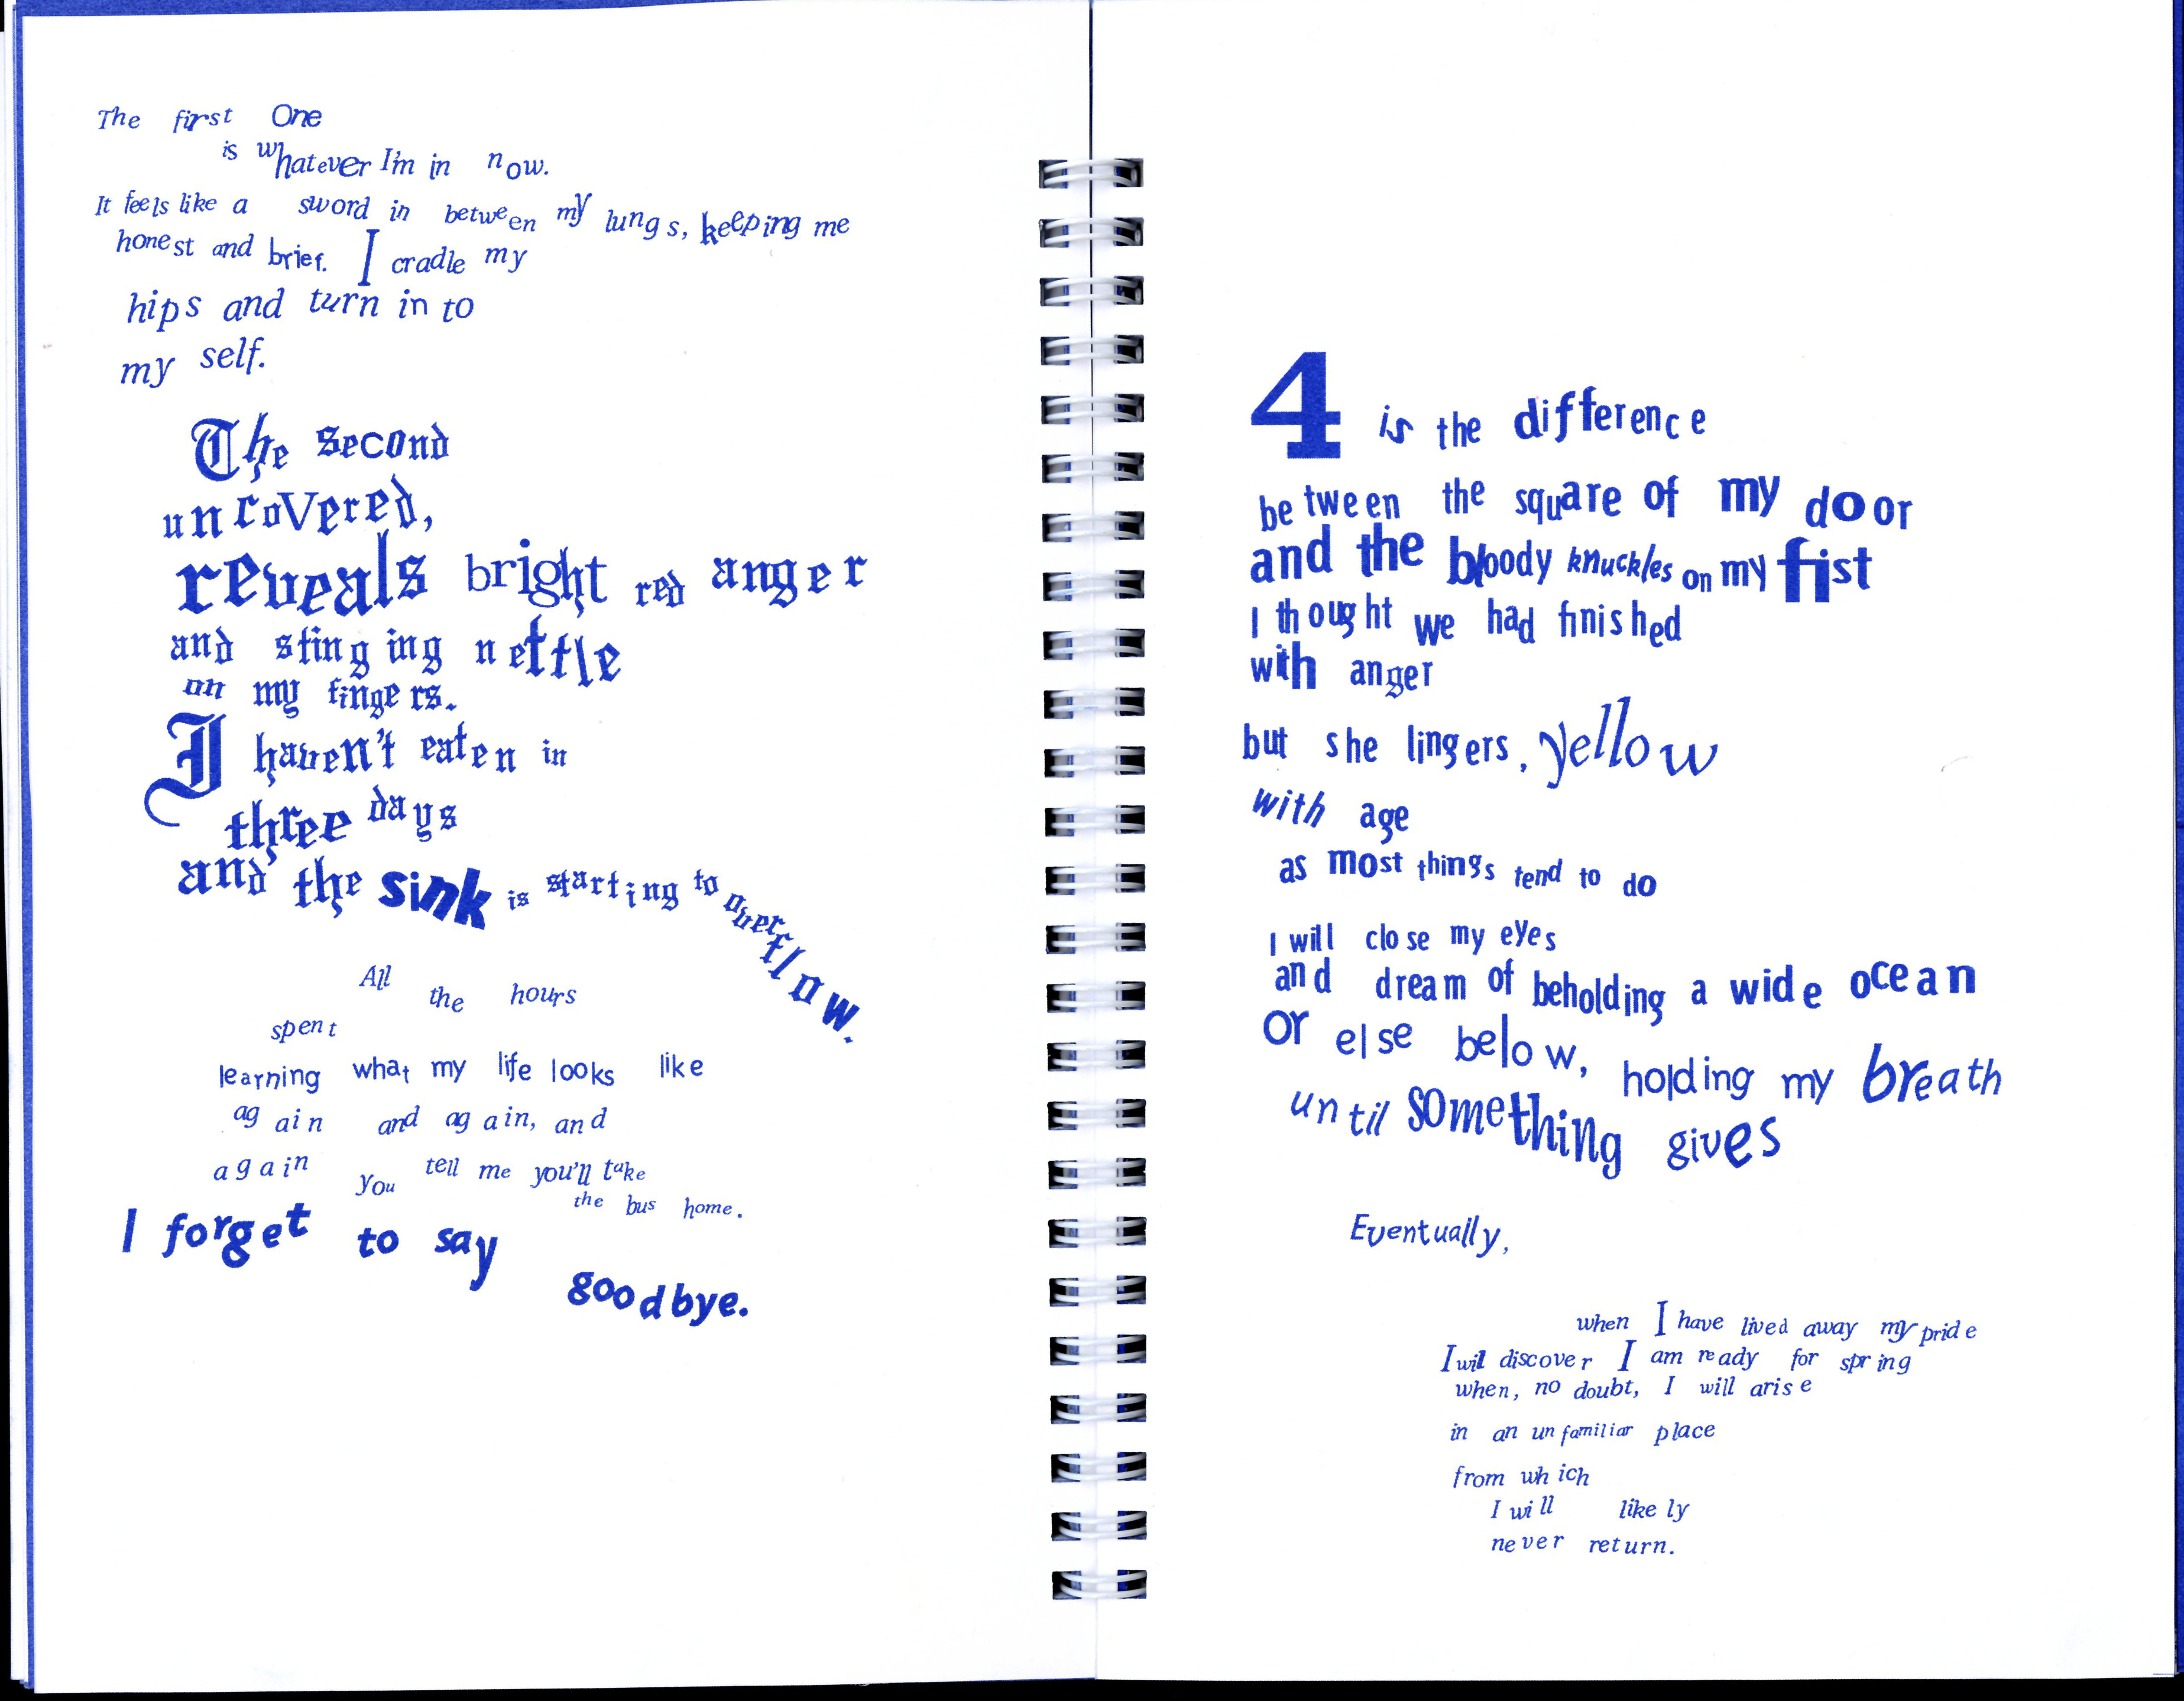 The first One
is whatever I'm in now.
It feels like a sword in between my lungs, keeping me
honest and brief. I cradle my
hips and turn in to
my self.
The second
uncoVered,
reveals bright red anger
and stinging nettle
on my fingers.
I haven't eaten in
three days
and the sink is starting to overflow.
All the hours
spent
learning what my life looks like
again and again, and
again you tell me you'll take
the bus home.
I forget to say
goodbye.
4 is the difference
between the square of my door
and the bloody knuckles on my fist
I thought we had finished
with anger
but she lingers, yellow
with age
as most things tend to do
I will close my eyes
and dream of beholding a wide ocean
or else below, holding my breath
until something gives
Eventually,
when I have lived away my pride
I wil discover I am ready for spring
when, no doubt, I will arise
in an unfamiliar place
from which
I will likely
never return.